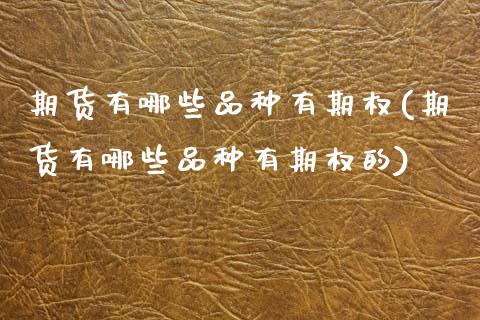 期货有哪些品种有期权(期
货有哪些品种有期权的)